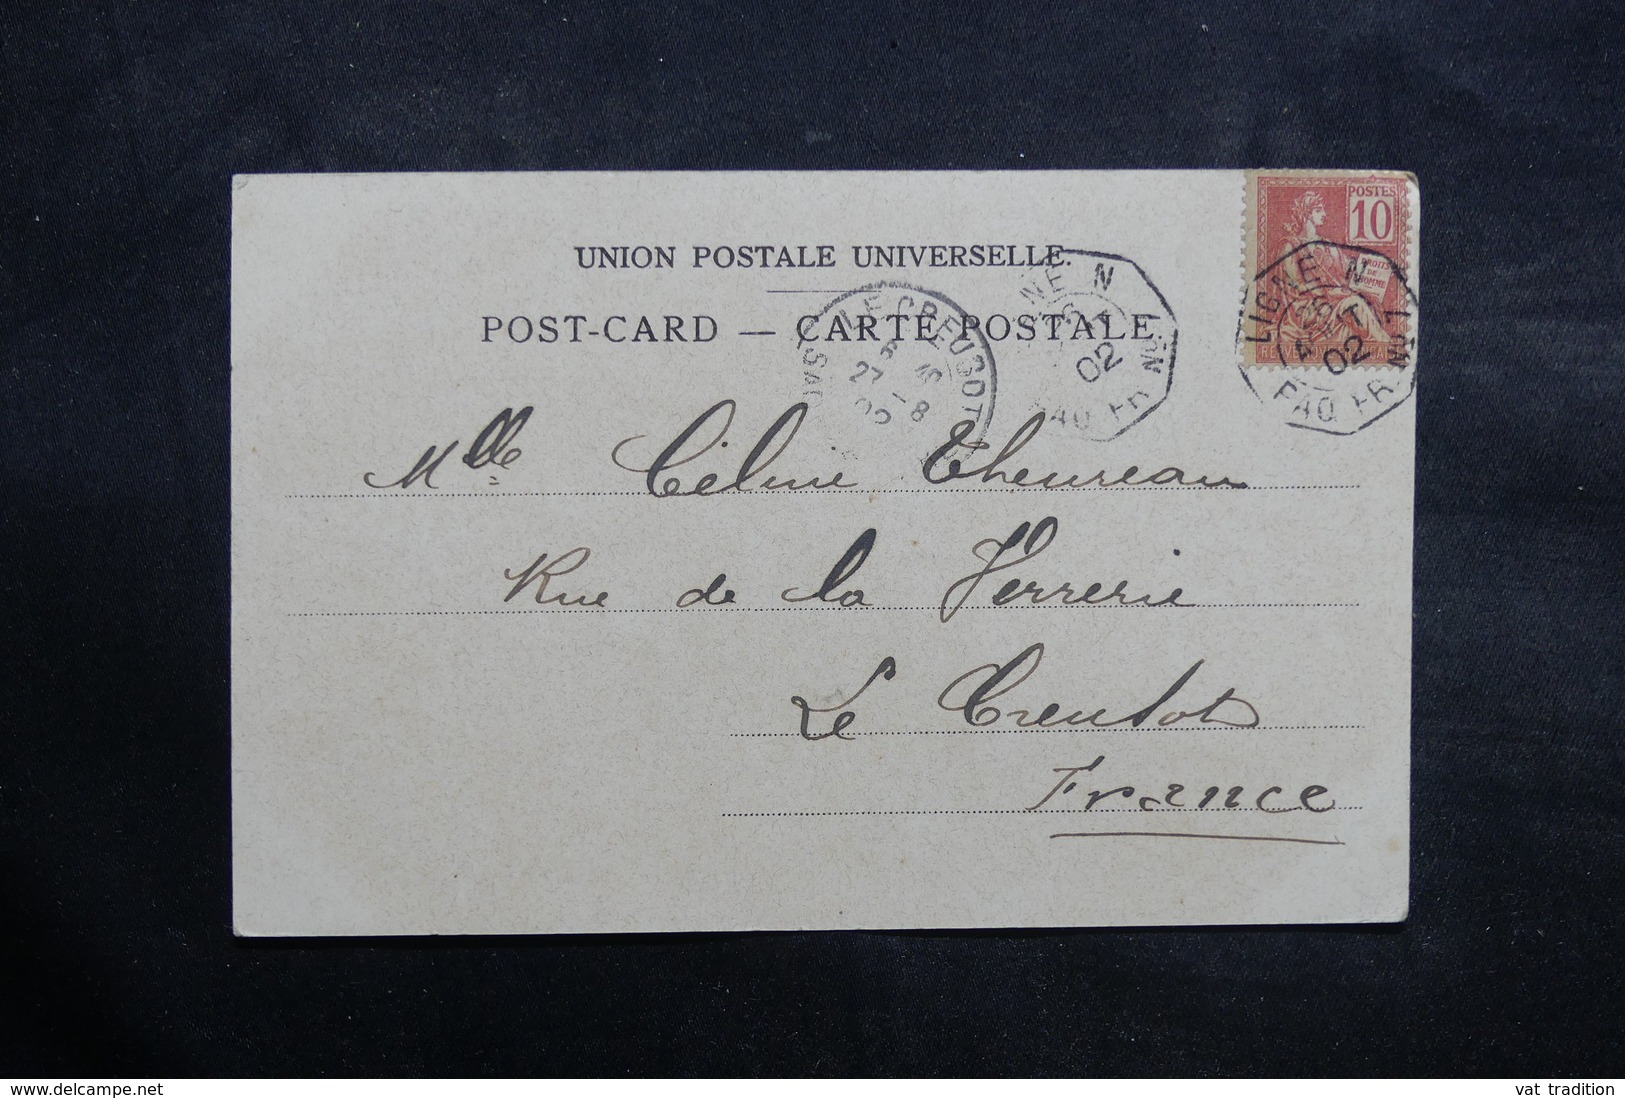 UNION POSTALE UNIVERSELLE.
POST-CARD — CARTE POSTALE
POSTES
10
DROITS
DE
HOMME
LIGNE N
02
PAQ. FR. Nº
LE CREUSOT
27 - 8
02
NE N
02
PAQ FR Nº
Mlle Céline Theureau
Rue de la Verrerie
Le Creusot
France
delcampe.net
vat tradition